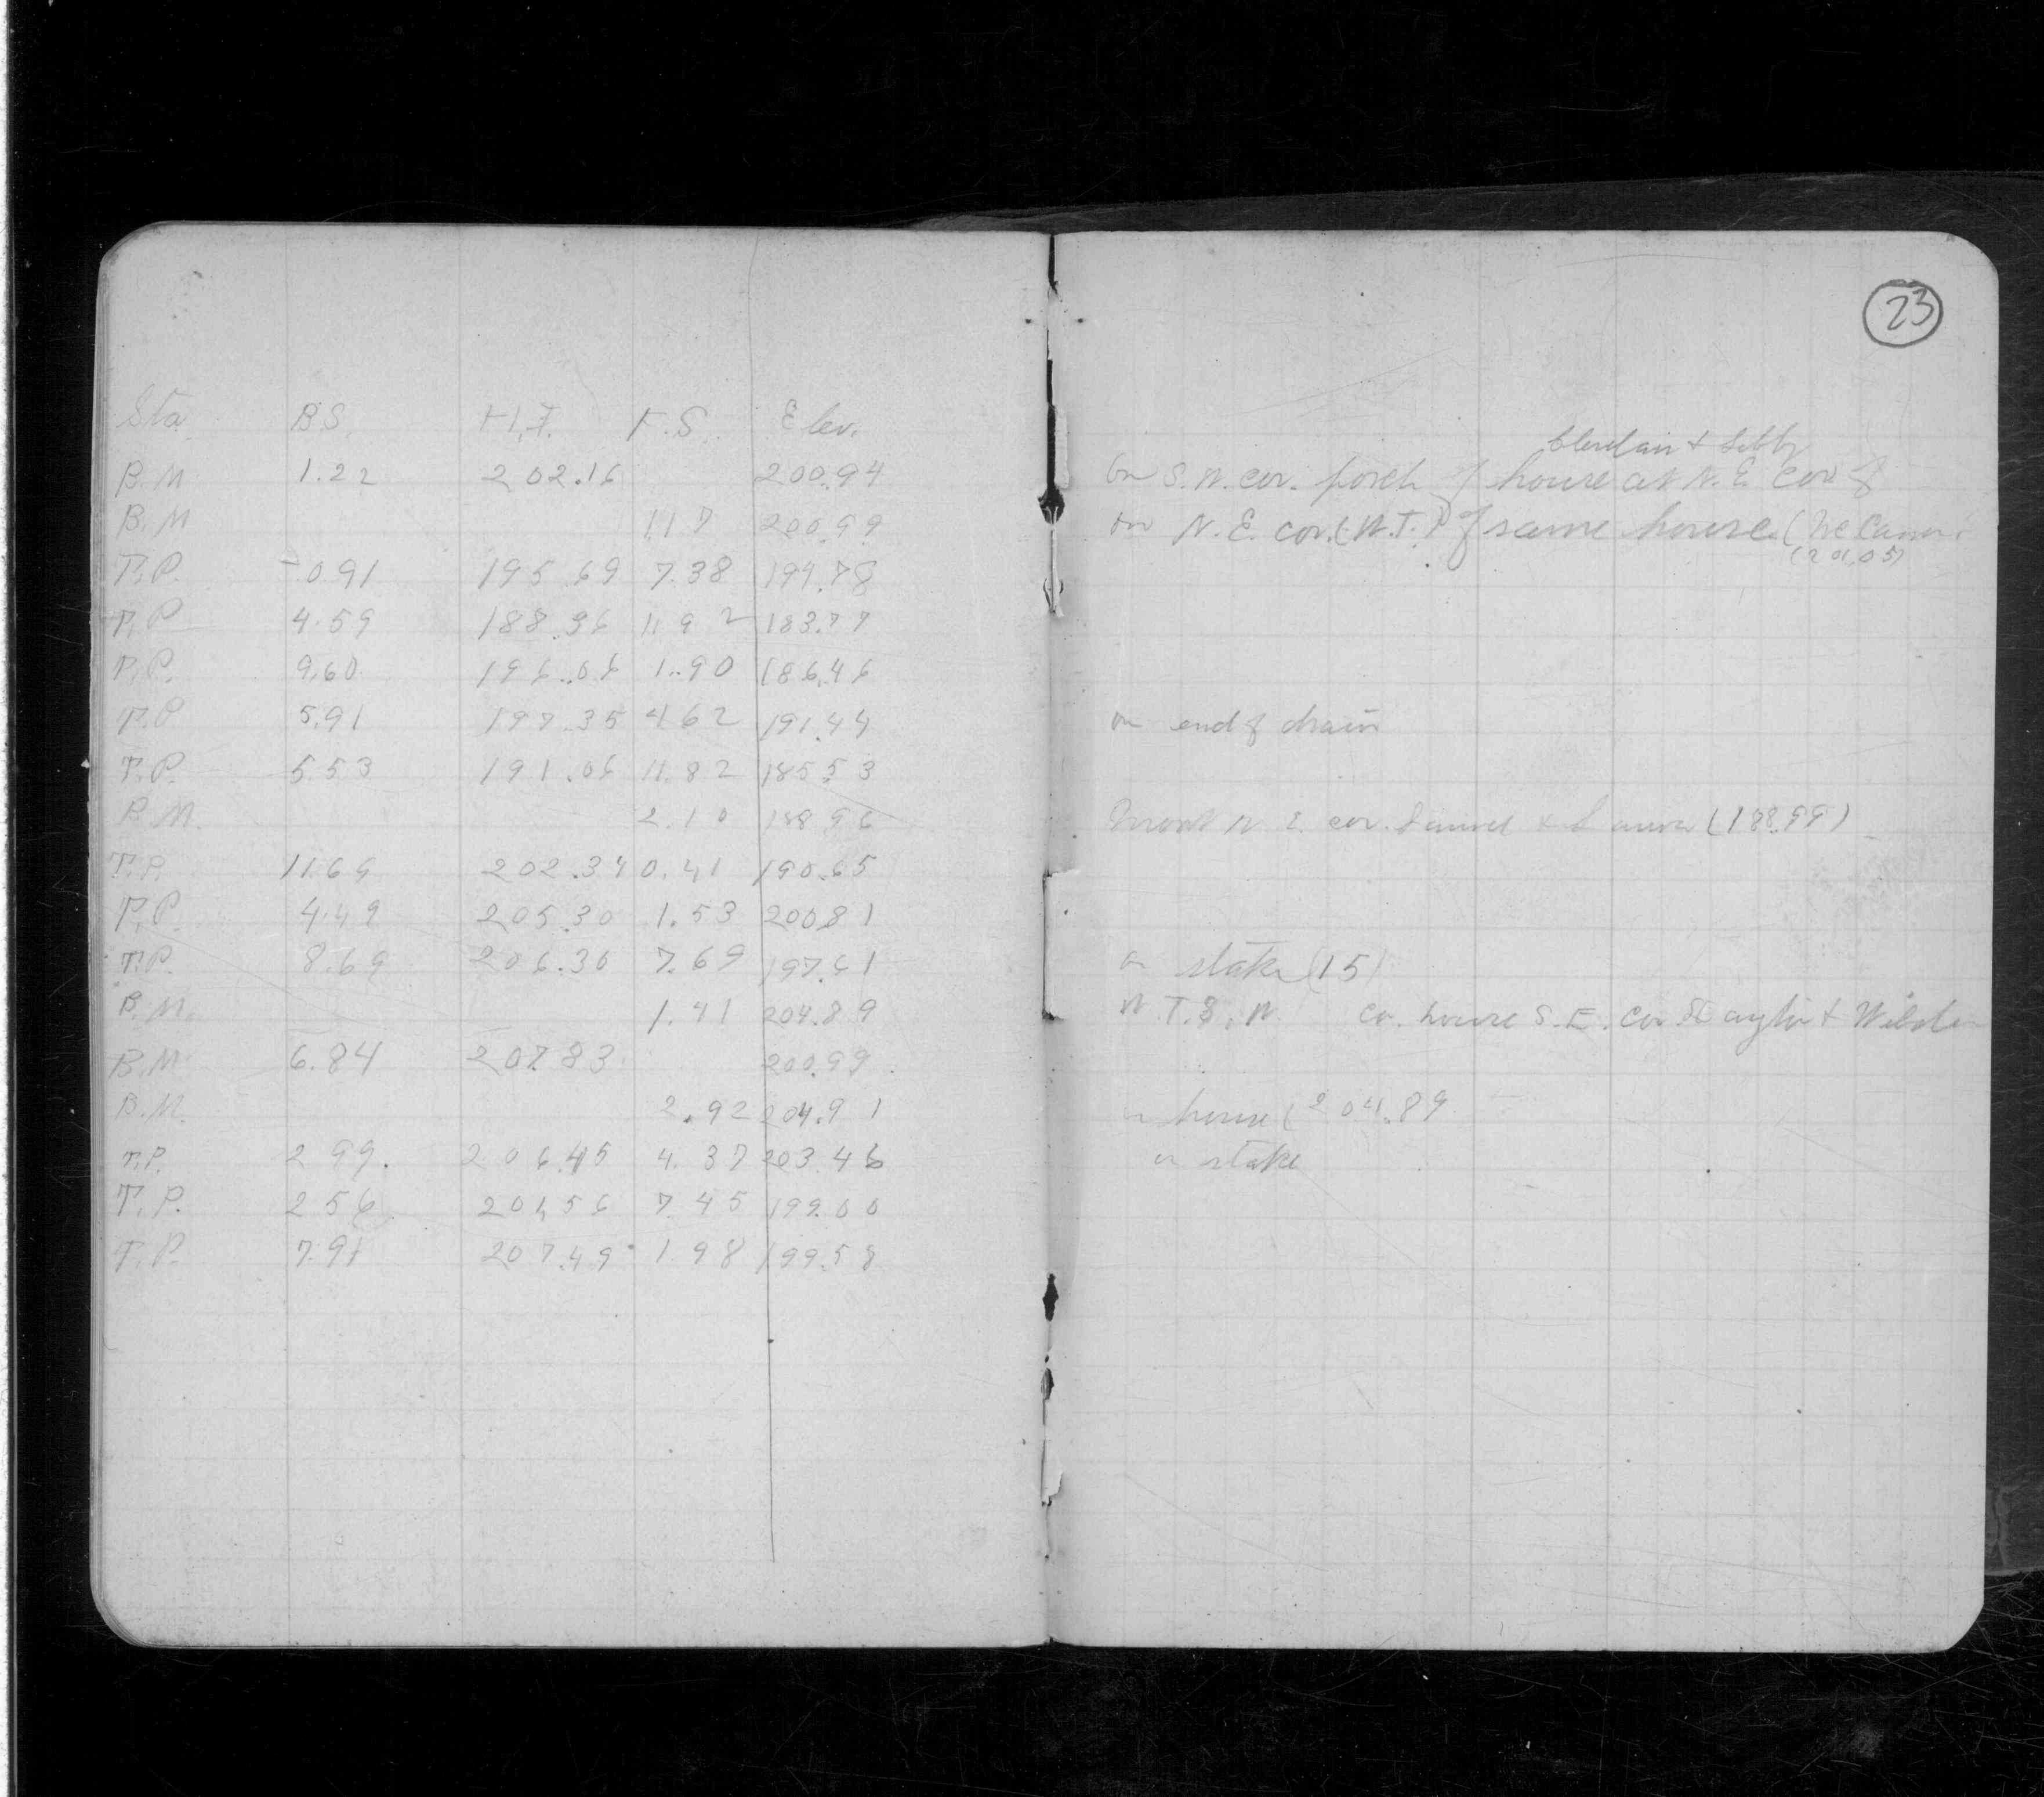 23
Sta. B.S. H.I. F.S. Elev.
B.M 1.22 202.16 200.94
B.M 1.17 200.99
T.P. 0.91 195.69 7.38 194.78
T.P. 4.59 188.36 11.92 183.77
T.P. 9.60 196.06 1.90 186.46
T.P. 5.91 197.35 4.62 191.44
T.P. 5.53 191.06 11.82 185.53
B.M. 2.10 188.96
T.P. 11.69 202.34 0.41 190.65
T.P. 4.49 205.30 1.53 200.81
T.P. 8.69 206.30 7.69 197.61
B.M. 1.41 204.89
B.M. 6.84 207.83 200.99
B.M. 2.92 204.91
T.P. 2.99. 206.45 4.37 203.46
T.P. 2.56 201.56 7.45 199.00
T.P. 7.91 207.49 1.98 199.58
on S.W. cor. porch of house at N.E cor of
on N.E. cor. (W.T.) of same house (
(201.05)
on end of drain
N.E. cor. & (188.99)
on stake (15)
W.T.S.W. co. house S.E. cor Taylor &
house (204.89
on stake